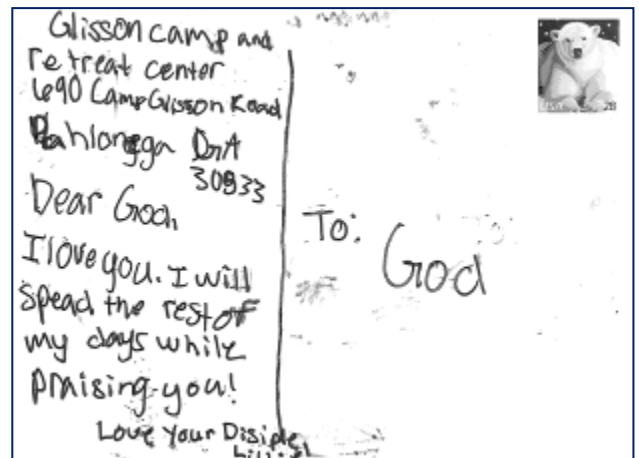 Glisson camp and
retreat center
690 Camp Glisson Road
Dahlonega GA
30533
Dear God,
I love you. I will
spead the rest of
my days while
praising you!
Love Your Disiple,
To:
God
USA 28